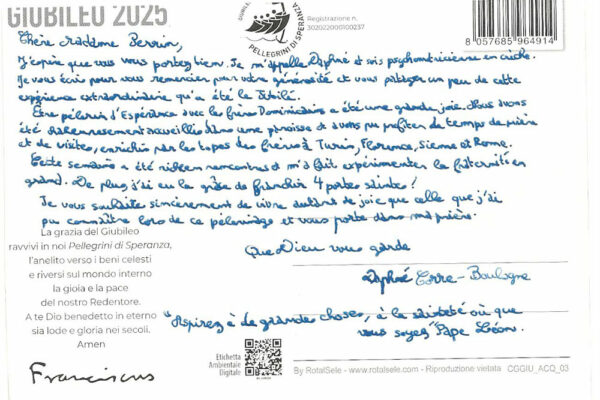 GIUBILEO 2025
PELLEGRINI DI SPERANZA
Registrazione n.
302022000100237
8 057685 964914
Chère Madame Perrin,
J'espère que vous vous portez bien. Je m'appelle Daphné et suis psychomotricienne en crèche.
Je vous écris pour vous remercier pour votre générosité et vous partager un peu de cette
expérience extraordinaire qu'a été le Jubilé.
Être pèlerin d'Espérance avec les frères Dominicains a été une grande joie. Nous avons
été chaleureusement accueillis dans une paroisse et avons pu profiter de temps de prière
et de visites, enrichis par les topos des frères à Turin, Florence, Sienne et Rome.
Cette semaine a été riche en rencontres et m'a fait expérimenter la fraternité en
grand. De plus j'ai eu la grâce de franchir 4 portes saintes!
Je vous souhaite sincèrement de vivre autant de joie que celle que j'ai
pu connaître lors de ce pèlerinage et vous porte dans ma prière.
Que Dieu vous garde
Daphné Erre-Boulogne
"Aspirez à de grandes choses, à la sainteté où que
vous soyez" Pape Léon.
La grazia del Giubileo
ravvivi in noi Pellegrini di Speranza,
l'anelito verso i beni celesti
e riversi sul mondo intero
la gioia e la pace
del nostro Redentore.
A te Dio benedetto in eterno
sia lode e gloria nei secoli.
Amen
Franciscus
Etichetta
Ambientale
Digitale
By RotalSele - www.rotalsele.com - Riproduzione vietata CGGIU_ACQ_03